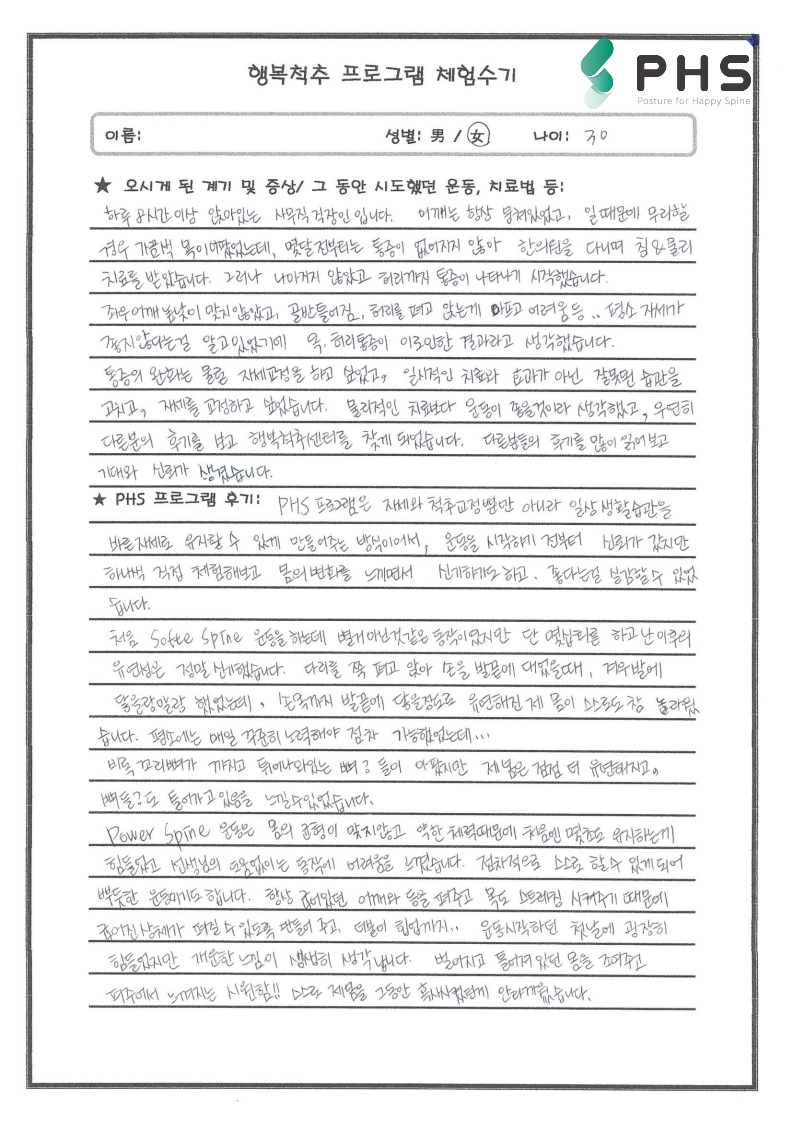 행복척추 프로그램 체험수기
PHS
Posture for Happy Spine
이름: 성별: 男 / 女 나이: 30
★ 오시게 된 계기 및 증상/ 그 동안 시도했던 운동, 치료법 등:
하루 8시간이상 앉아있는 사무직 직장인입니다. 어깨는 항상 뭉쳐있었고, 일때문에 무리할
경우 가끔씩 목이아팠었는데, 몇달전부터는 통증이 없어지지 않아 한의원을 다니며 침&물리
치료를 받았습니다. 그러나 나아지지 않았고 허리까지 통증이 나타나기 시작했습니다.
좌우어깨높낮이 맞지않았고, 골반틀어짐, 허리를 펴고 앉는게 아프고 어려움등.. 평소 자세가
좋지않다는걸 알고있었기에 목.허리통증이 이로인한 결과라고 생각했습니다.
통증의 완화는 물론 자세교정을 하고 싶었고, 일시적인 치료와 효과가 아닌 잘못된 습관을
고치고, 자세를 교정하고 싶었습니다. 물리적인 치료보다 운동이 좋을것이라 생각했고, 우연히
다른분의 후기를 보고 행복척추센터를 찾게 되었습니다. 다른분들의 후기를 많이 읽어보고
기대와 신뢰가 생겼습니다.
★ PHS 프로그램 후기: PHS프로그램은 자세와 척추교정뿐만 아니라 일상생활습관을
바른자세로 유지할 수 있게 만들어주는 방식이어서, 운동을 시작하기 전부터 신뢰가 갔지만
하나씩 직접 체험해보고 몸의변화를 느끼면서 신기하기도하고. 좋다는걸 실감할수 있었
습니다.
처음 Softe Spine 운동을 하는데 별거아닌것같은 동작이였지만 단 몇십터를 하고난이후의
유연성은 정말 신기했습니다. 다리를 쭉 펴고 앉아 손을 발끝에 대었을때, 겨우발에
닿을랑말랑 했었는데, 손목까지 발끝에 닿을정도로 유연해진 제 몸이 스스로도 참 놀라웠
습니다. 평소에는 매일 꾸준히 노력해야 점차 가능했었는데...
비록 꼬리뼈가 까지고 튀어나와있는 뼈들이 아팠지만 제몸은 점점 더 유연해지고,
뼈들도 들어가고 있음을 느낄수있었습니다.
Power Spine 운동은 몸의 균형이 맞지않고 약한체력때문에 처음엔 몇초도 유지하는게
힘들었고 선생님의 도움없이는 동작에 어려움을 느꼈습니다. 점차적으로 스스로 할 수 있게되어
뿌듯한 운동이기도 합니다. 항상 굽어있던 어깨와 등을 펴주고 목도 스트레칭 시켜주기 때문에
굽어진상체가 펴질 수 있도록 만들어 주고, 더불어 힙업까지.. 운동시작하던 첫날에 굉장히
힘들었지만 개운한 느낌이 생생히 생각납니다. 벌어지고 틀어져있던 몸을 조여주고
펴주에서 느껴지는 시원함!! 스스로 제몸을 그동안 혹사시켰단게 안타까웠습니다.